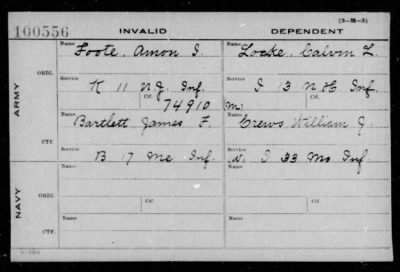 (3-M-3)
100556 INVALID DEPENDENT
Name Name
Foote, Amon I. Locke, Calvin L.
ARMY
ORIG.
Service Service
K 11 N.J. Inf. I 13 N H Inf.
Ctf. Ctf.
74910 m.
CTF.
Name Name
Bartlett James F. Crews, William J.
Service
B 17 Me Inf. I 33 Mo Inf.
NAVY
ORIG.
Name Name
Service Service
Ctf. Ctf.
CTF.
Name Name